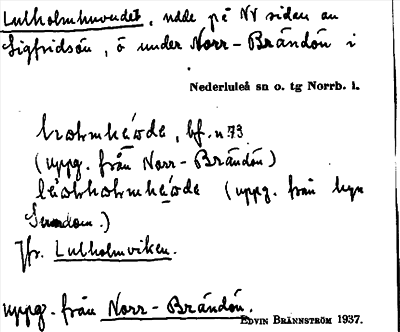 Lulholmhuvudet, udde på NV sidan av
Sigfridsön, ö under Norr-Brändön i
Nederluleå sn o. tg Norrb. l.
bf. n 73
(uppg. från Norr-Brändön)
(uppg. från byn
Sundom.)
Jfr. Lulholmviken.
uppg. från Norr-Brändön.
EDVIN BRÄNNSTRÖM 1937.